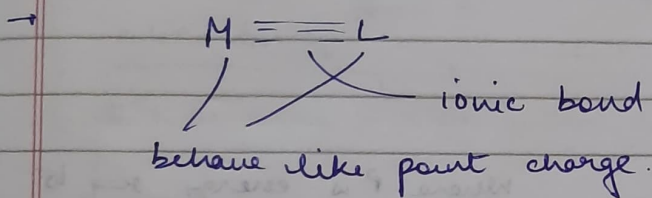 → M ≡ L
ionic bond
behave like point charge.